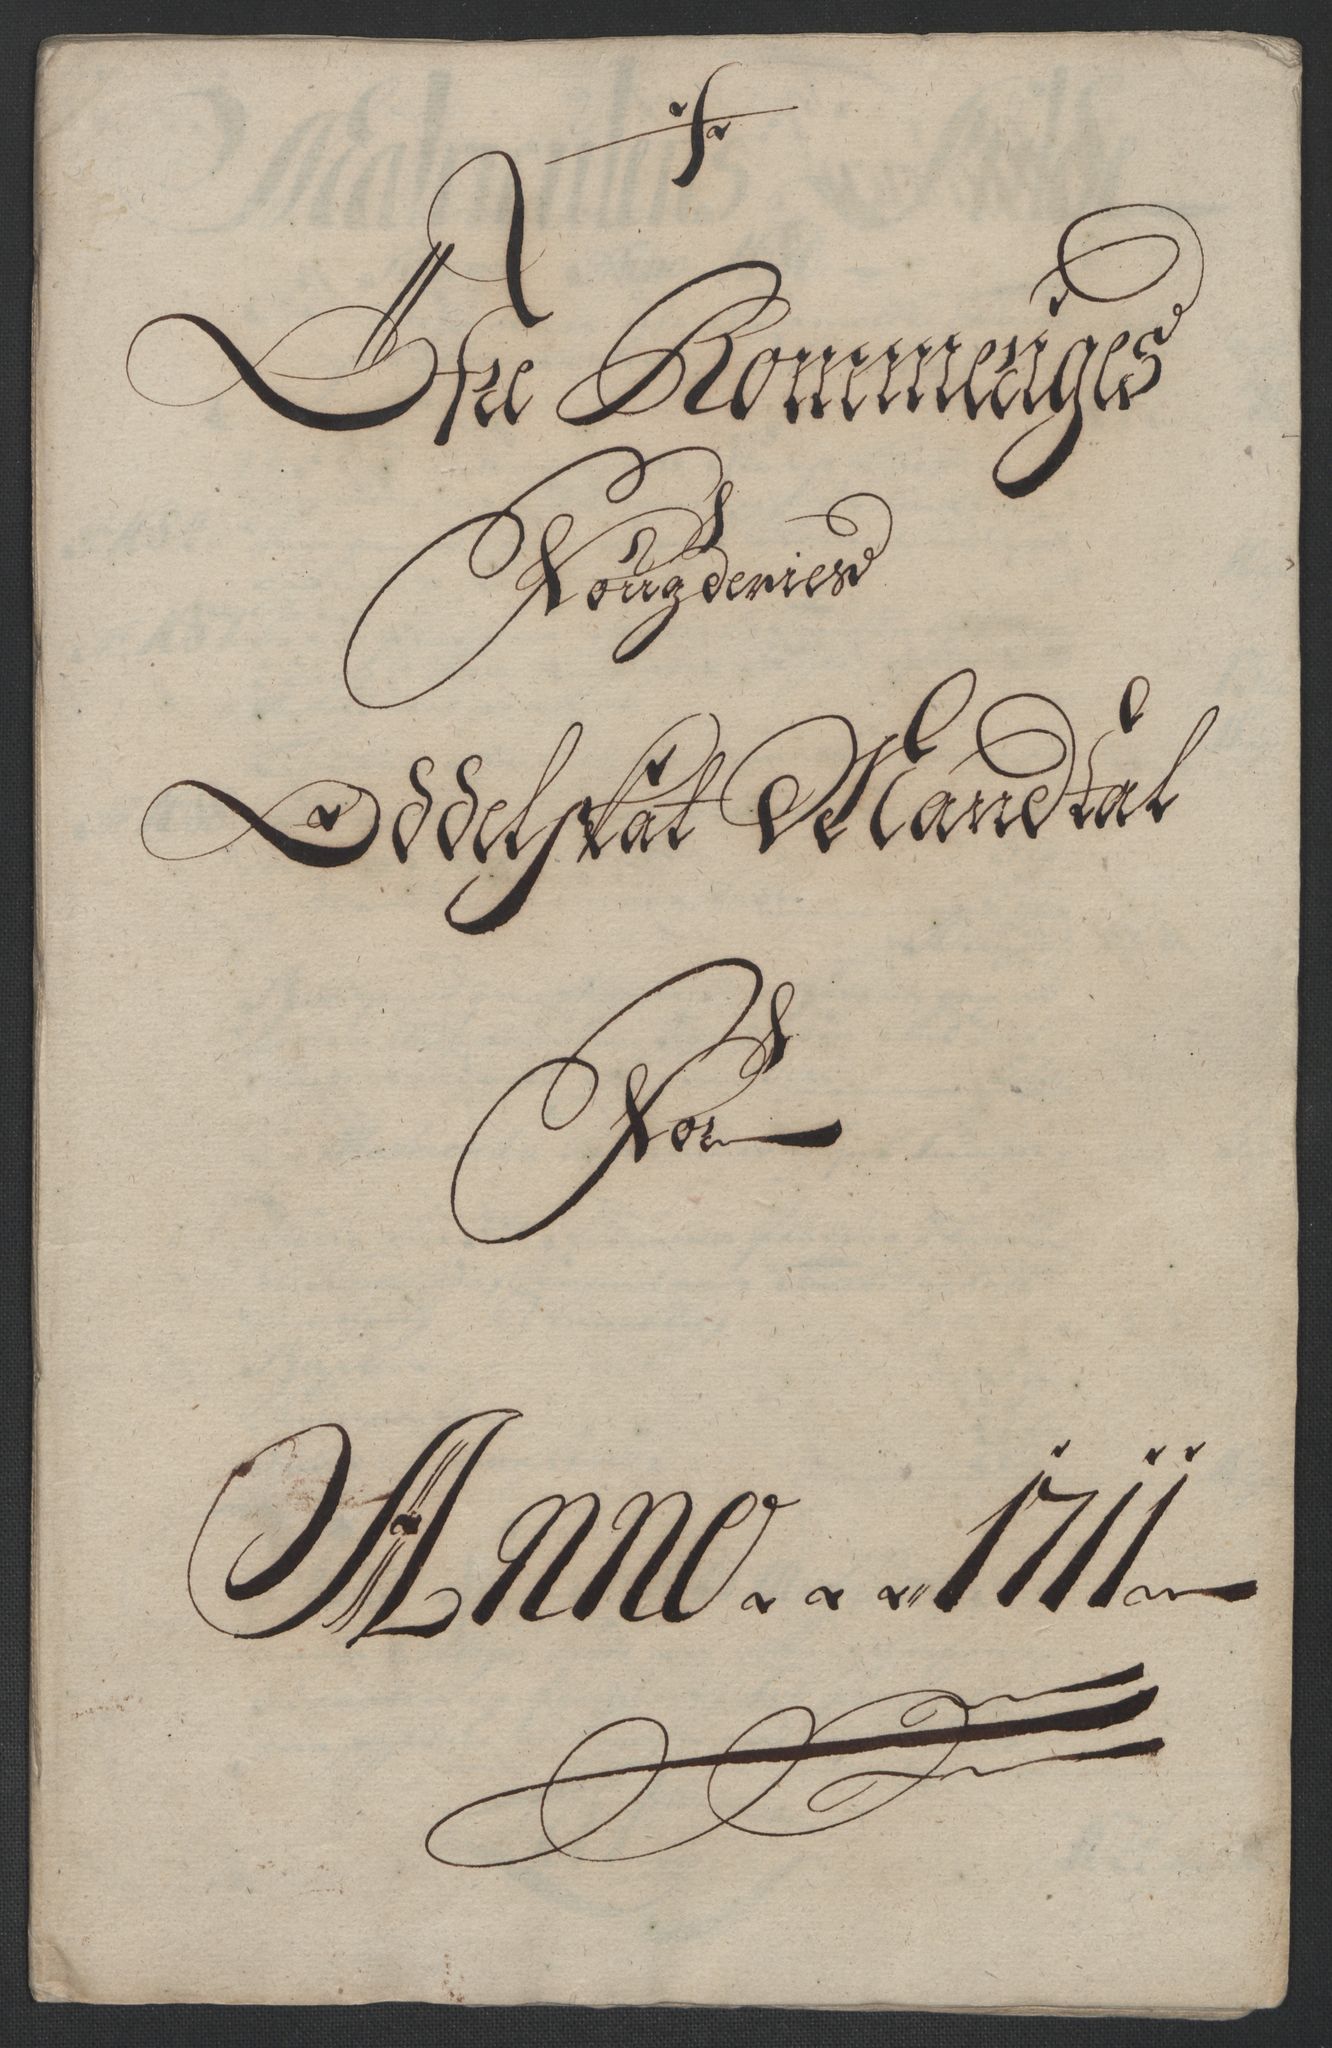 Øfre Rommeriges
Fougderies
Oddelskat Mandtal
For
Anno... 1711